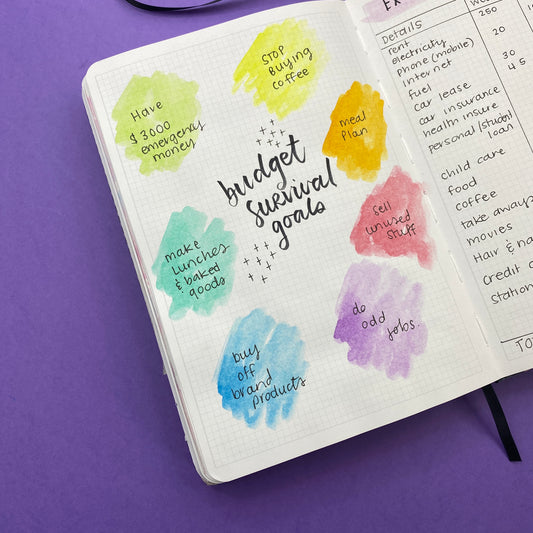 budget
survival
goals
STOP
Buying
coffee
meal
plan
sell
unused
stuff
do
odd
jobs.
buy
off
brand
products
make
lunches
& baked
goods
Have
$3000
emergency
money
EX
Details
rent 250
electricity
phone (mobile) 20
internet
fuel 30
car lease 45
car insurance
health insure
personal/student
loan
child care
food
coffee
take aways
movies
Hair & na
credit c
station
TO